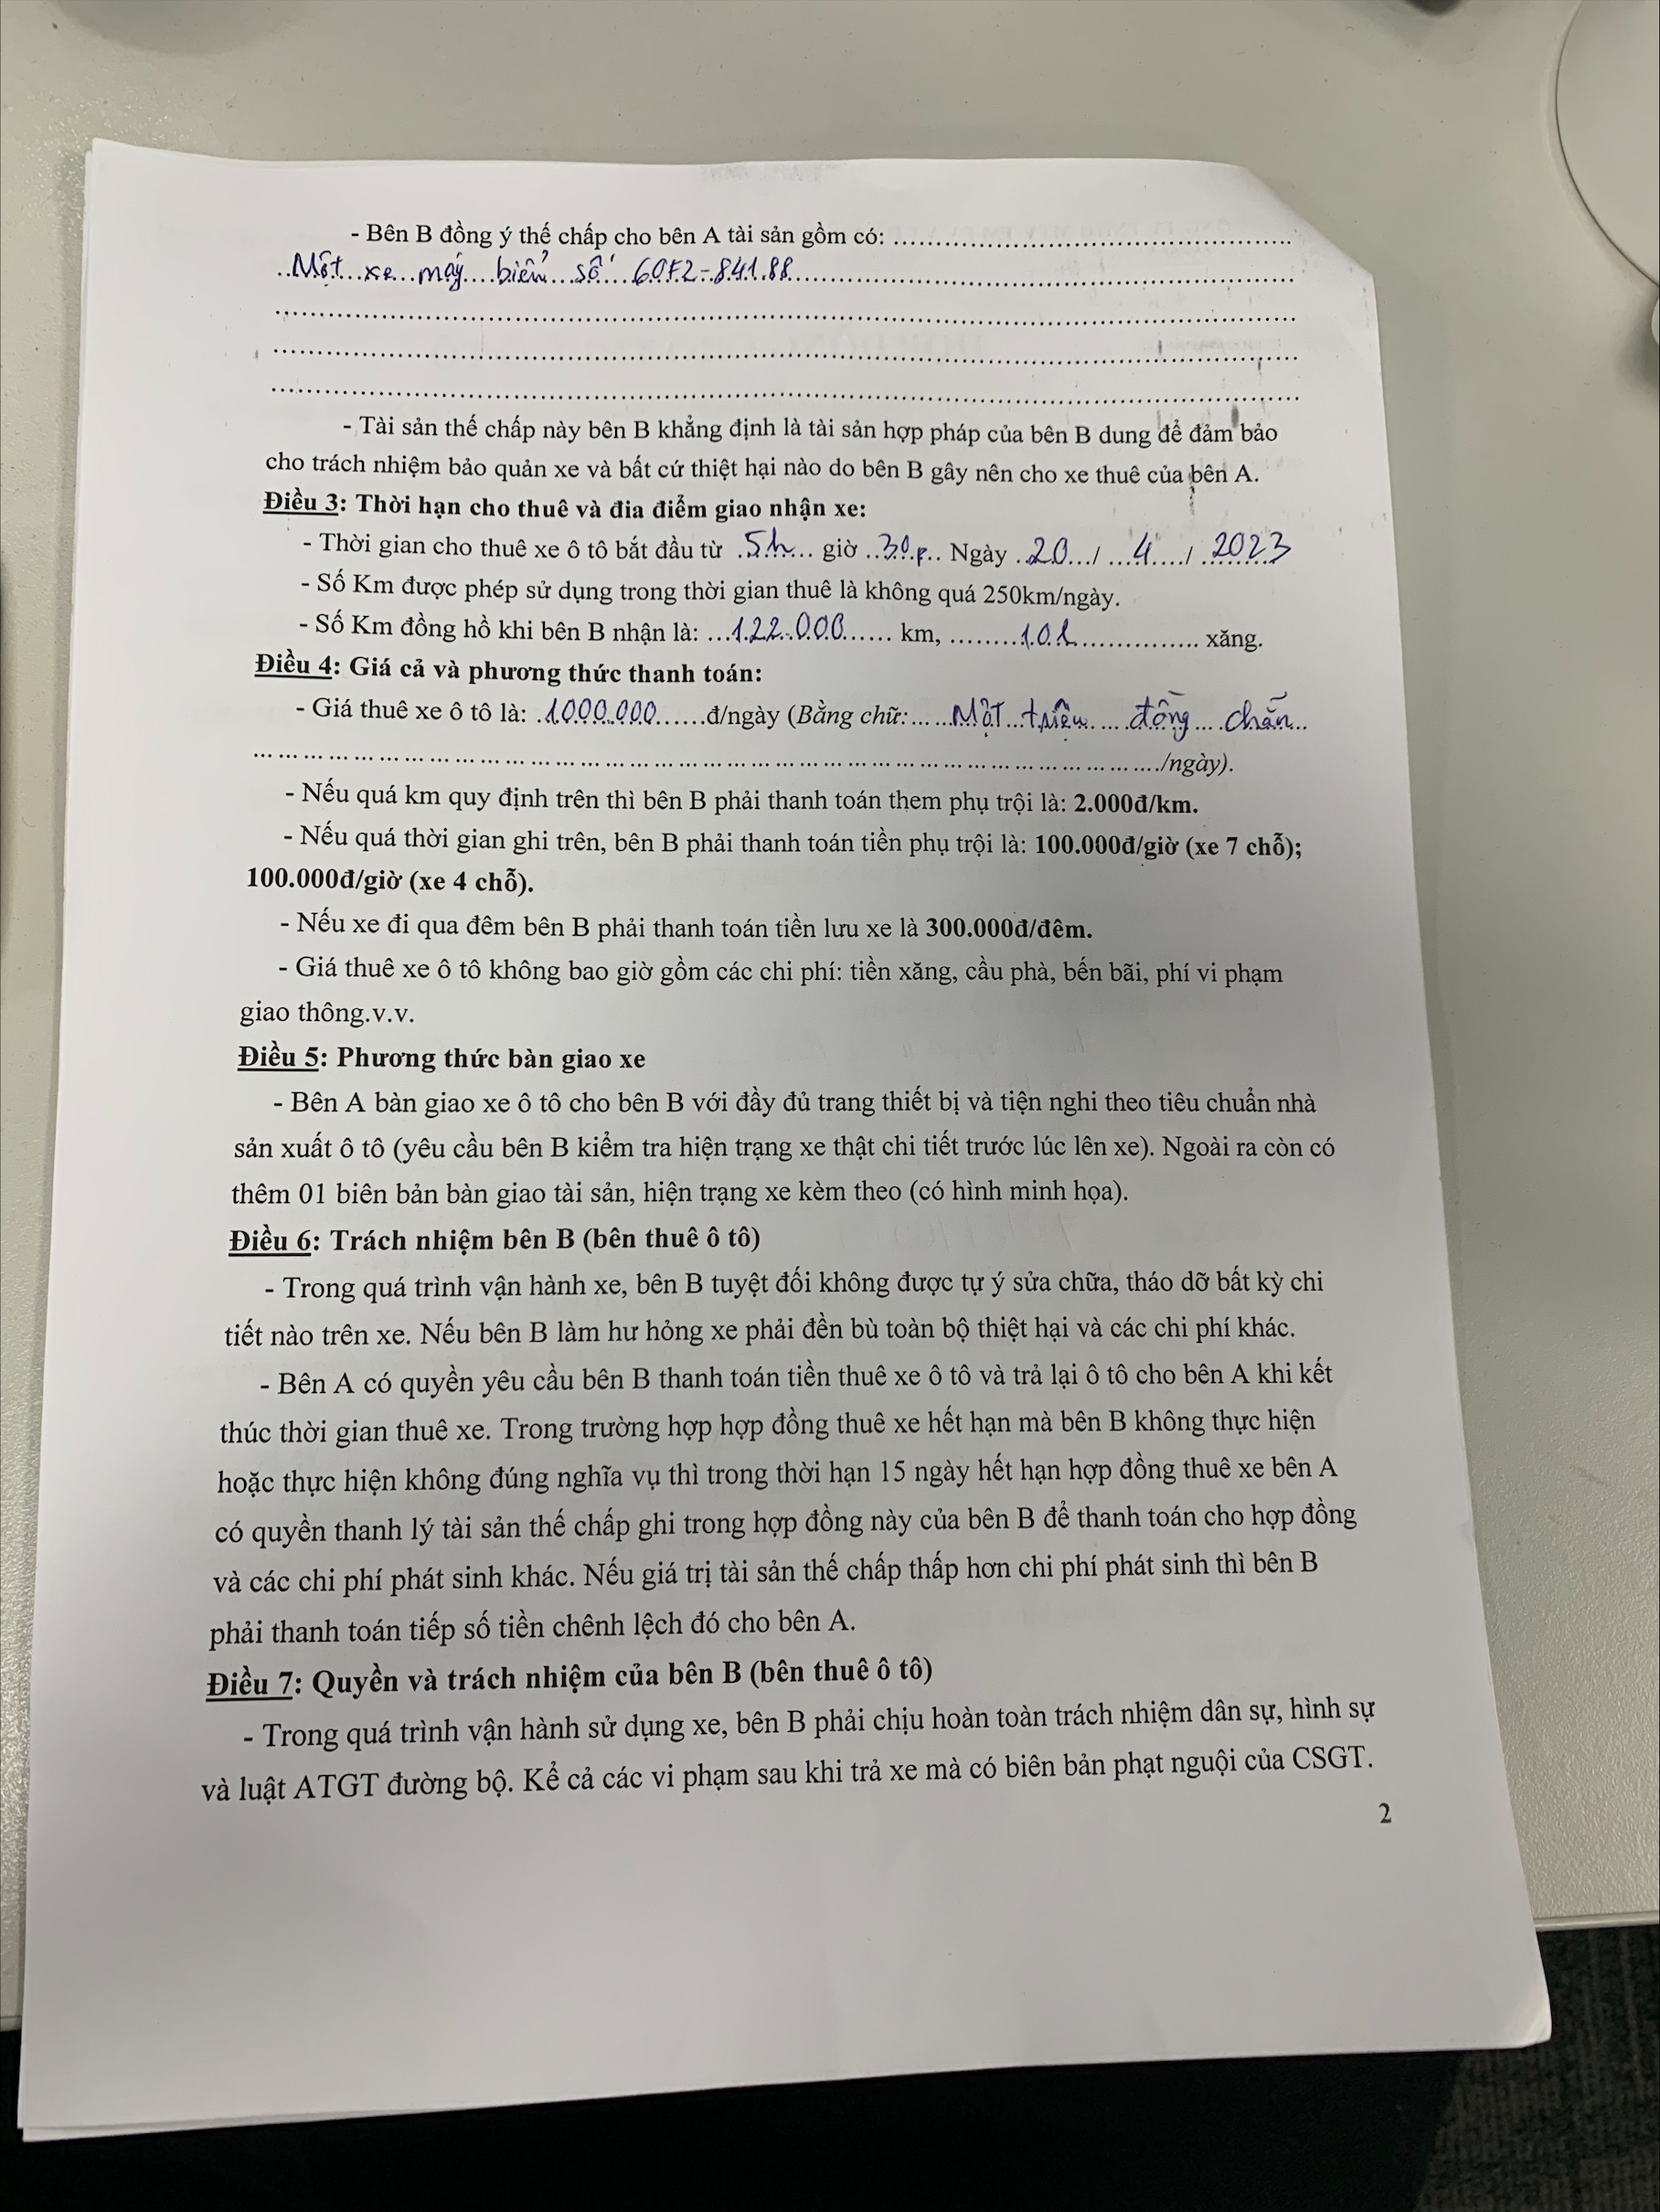 - Bên B đồng ý thế chấp cho bên A tài sản gồm có: ................................................
..Một...xe...máy....biển...số...60F2-841.88................................................
................................................
................................................
................................................
- Tài sản thế chấp này bên B khẳng định là tài sản hợp pháp của bên B dung để đảm bảo
cho trách nhiệm bảo quản xe và bất cứ thiệt hại nào do bên B gây nên cho xe thuê của bên A.
Điều 3: Thời hạn cho thuê và đia điểm giao nhận xe:
- Thời gian cho thuê xe ô tô bắt đầu từ .5h... giờ ..30p.. Ngày ..20.../ ...4..../ .2023
- Số Km được phép sử dụng trong thời gian thuê là không quá 250km/ngày.
- Số Km đồng hồ khi bên B nhận là: ...122.000...... km, ........10l................ xăng.
Điều 4: Giá cả và phương thức thanh toán:
- Giá thuê xe ô tô là: .1000.000......đ/ngày (Bằng chữ:... ...Một...triệu... ...đồng... ..chẵn...
... ... ... ... ... ... ... ... ... ... ... ... ... ... ... ... ... ... ... ... ... ... ... ... ... ... ..../ngày).
- Nếu quá km quy định trên thì bên B phải thanh toán them phụ trội là: 2.000đ/km.
- Nếu quá thời gian ghi trên, bên B phải thanh toán tiền phụ trội là: 100.000đ/giờ (xe 7 chỗ);
100.000đ/giờ (xe 4 chỗ).
- Nếu xe đi qua đêm bên B phải thanh toán tiền lưu xe là 300.000đ/đêm.
- Giá thuê xe ô tô không bao giờ gồm các chi phí: tiền xăng, cầu phà, bến bãi, phí vi phạm
giao thông.v.v.
Điều 5: Phương thức bàn giao xe
- Bên A bàn giao xe ô tô cho bên B với đầy đủ trang thiết bị và tiện nghi theo tiêu chuẩn nhà
sản xuất ô tô (yêu cầu bên B kiểm tra hiện trạng xe thật chi tiết trước lúc lên xe). Ngoài ra còn có
thêm 01 biên bản bàn giao tài sản, hiện trạng xe kèm theo (có hình minh họa).
Điều 6: Trách nhiệm bên B (bên thuê ô tô)
- Trong quá trình vận hành xe, bên B tuyệt đối không được tự ý sửa chữa, tháo dỡ bất kỳ chi
tiết nào trên xe. Nếu bên B làm hư hỏng xe phải đền bù toàn bộ thiệt hại và các chi phí khác.
- Bên A có quyền yêu cầu bên B thanh toán tiền thuê xe ô tô và trả lại ô tô cho bên A khi kết
thúc thời gian thuê xe. Trong trường hợp hợp đồng thuê xe hết hạn mà bên B không thực hiện
hoặc thực hiện không đúng nghĩa vụ thì trong thời hạn 15 ngày hết hạn hợp đồng thuê xe bên A
có quyền thanh lý tài sản thế chấp ghi trong hợp đồng này của bên B để thanh toán cho hợp đồng
và các chi phí phát sinh khác. Nếu giá trị tài sản thế chấp thấp hơn chi phí phát sinh thì bên B
phải thanh toán tiếp số tiền chênh lệch đó cho bên A.
Điều 7: Quyền và trách nhiệm của bên B (bên thuê ô tô)
- Trong quá trình vận hành sử dụng xe, bên B phải chịu hoàn toàn trách nhiệm dân sự, hình sự
và luật ATGT đường bộ. Kể cả các vi phạm sau khi trả xe mà có biên bản phạt nguội của CSGT.
2